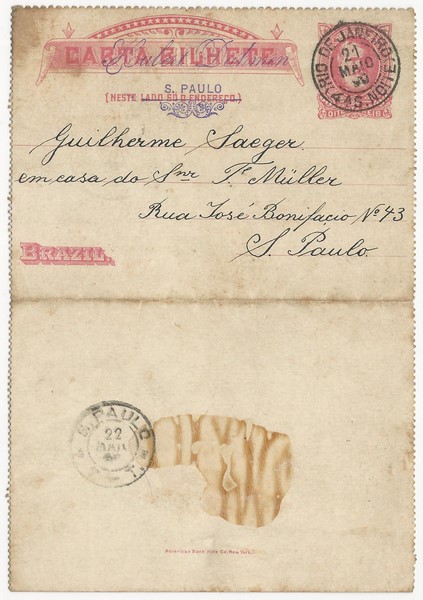 CARTA BILHETE
S. PAULO
(NESTE LADO SÓ O ENDEREÇO.)
RIO DE JANEIRO
21
MAIO
90
4 AS. NOITE
Guilherme Saeger.
em casa do Snr. Fe Müller
Rua José Bonifacio No 43
S. Paulo.
BRAZIL.
S. PAULO
22
MAI
American Bank Note Co. New York.